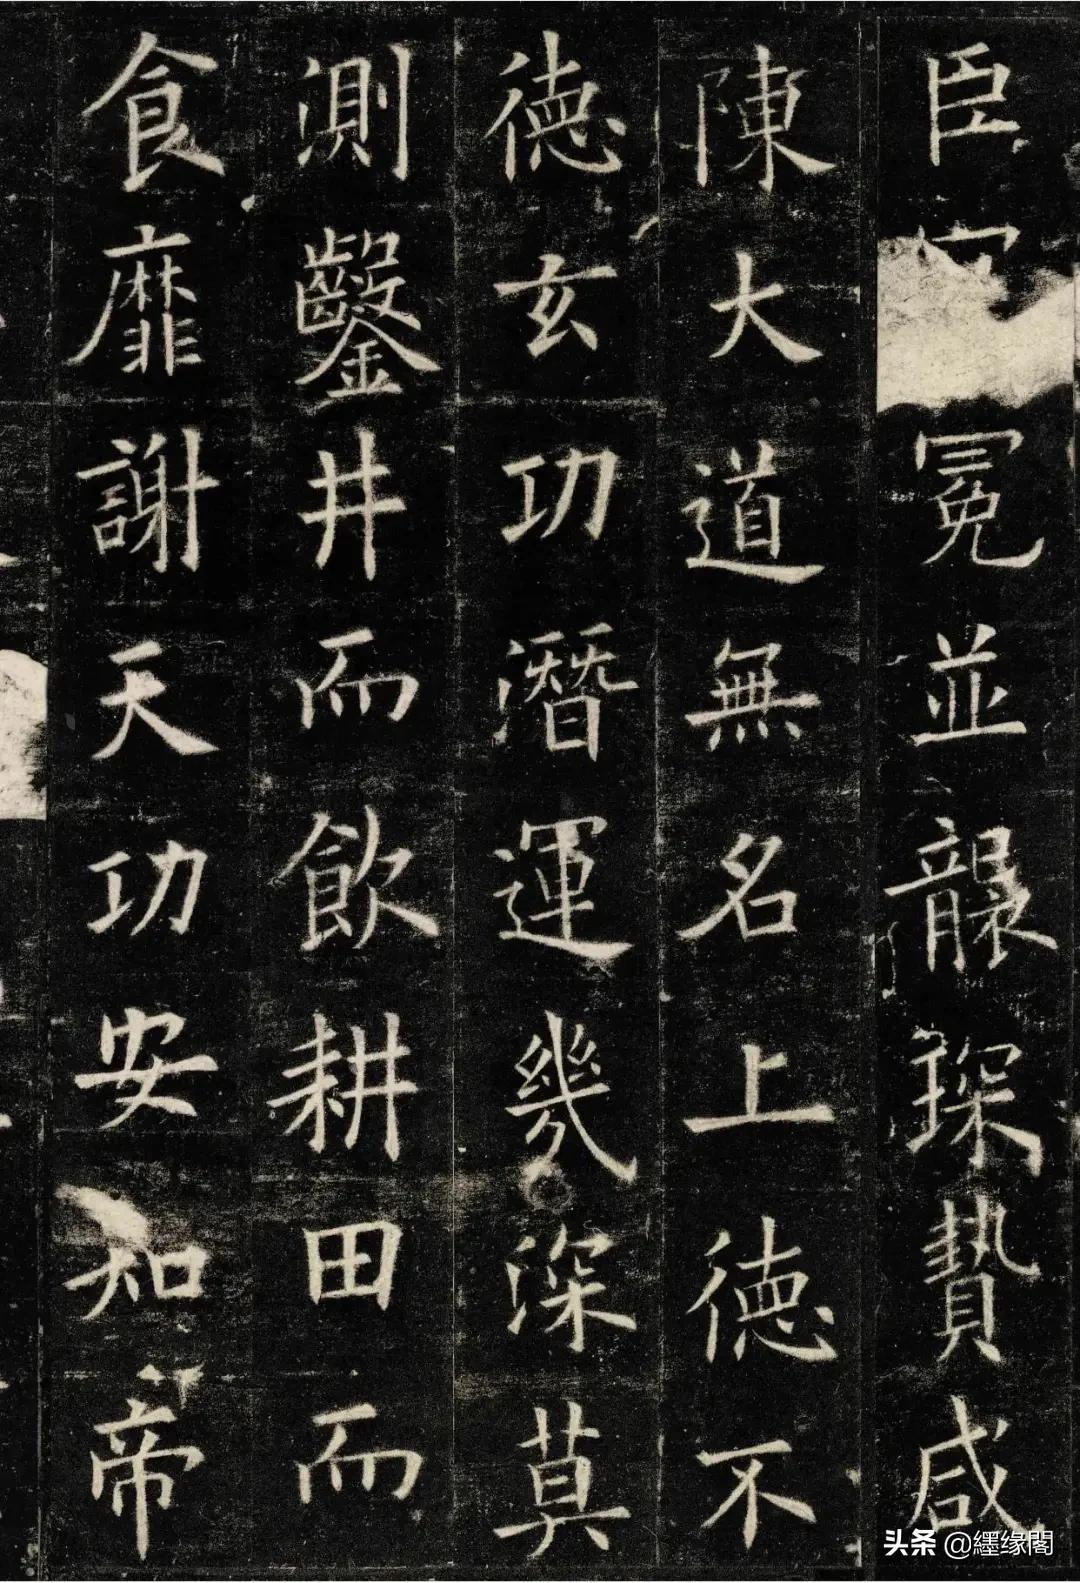 臣冕並襲琛贄咸
陳大道無名上德不
德玄功潛運幾深莫
測鑿井而飲耕田而
食靡謝天功安知帝
头条 @纆缘閣